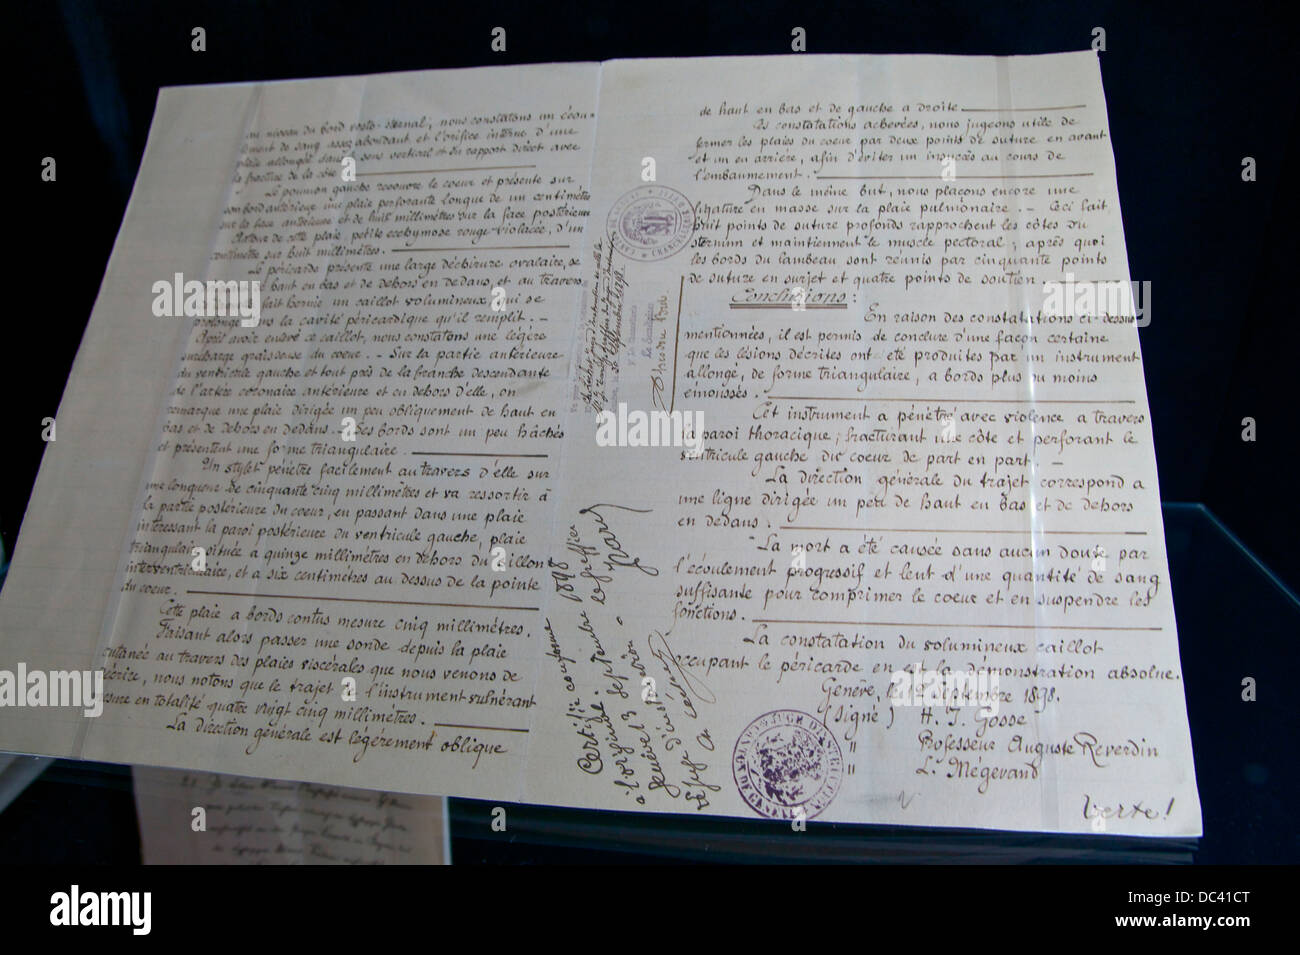 au niveau du bord costo-sternal, nous constatons un écou-
lement de sang assez abondant et l'orifice interne d'une
plaie allongée dans le sens vertical et en rapport direct avec
la fracture de la côte
Le poumon gauche recouvre le coeur et présente sur
son bord antérieur une plaie perforante longue de un centimètre
sur la face antérieure et de huit millimètres sur la face postérieure
Autour de cette plaie, petite ecchymose rouge-violacée, d'un
centimètre sur huit millimètres.
Le péricarde présente une large déchirure ovalaire, se
de haut en bas et de dehors en dedans, et au travers
fait hernie un caillot volumineux qui se
prolonge dans la cavité péricardique qu'il remplit. -
Après avoir enlevé ce caillot, nous constatons une légère
surcharge graisseuse du coeur. - Sur la partie antérieure
du ventricule gauche et tout près de la branche descendante
de l'artère coronaire antérieure et en dehors d'elle, on
remarque une plaie dirigée un peu obliquement de haut en
bas et de dehors en dedans. - Ses bords sont un peu hâchés
et présentent une forme triangulaire.
Un stylet pénètre facilement au travers d'elle sur
une longueur de cinquante cinq millimètres et va ressortir à
la partie postérieure du coeur, en passant dans une plaie
intéressant la paroi postérieure du ventricule gauche, plaie
triangulaire située à quinze millimètres en dehors du sillon
interventriculaire, et à six centimètres au dessus de la pointe
du coeur.
Cette plaie a bords contus mesure cinq millimètres.
Faisant alors passer une sonde depuis la plaie
cutanée au travers des plaies viscérales que nous venons de
décrire, nous notons que le trajet de l'instrument vulnérant
mesure en totalité quatre vingt cinq millimètres.
La direction générale est légèrement oblique
Certifié conforme
à l'original.
Genève
septembre 1898
le greffier
de haut en bas et de gauche a droite
Ces constatations achevées, nous jugeons utile de
fermer les plaies du coeur par deux points de suture en avant
et un en arrière, afin d'éviter un insuccès au cours de
l'embaumement.
Dans le même but, nous plaçons encore une
ligature en masse sur la plaie pulmonaire. - Ceci fait,
huit points de suture profonds rapprochent les côtes du
sternum et maintiennent le muscle pectoral; après quoi
les bords du lambeau sont réunis par cinquante points
de suture en surjet et quatre points de soutien
Conclusions:
En raison des constatations ci-dessus
mentionnées, il est permis de conclure d'une façon certaine
que les lésions décrites ont été produites par un instrument
allongé, de forme triangulaire, a bords plus ou moins
émoussés.
Cet instrument a pénétré avec violence a travers
la paroi thoracique, fracturant une côte et perforant le
ventricule gauche du coeur de part en part. -
La direction générale du trajet correspond a
une ligne dirigée un peu de haut en bas et de dehors
en dedans.
La mort a été causée sans aucun doute par
l'écoulement progressif et lent d'une quantité de sang
suffisante pour comprimer le coeur et en suspendre les
fonctions.
La constatation du volumineux caillot
occupant le péricarde en est la démonstration absolue.
Genève, le 12 Septembre 1898.
(Signé) H. J. Gosse
" Professeur Auguste Reverdin
" L. Mégevand
Verte!
alamy
Image ID: DC41CT
www.alamy.com